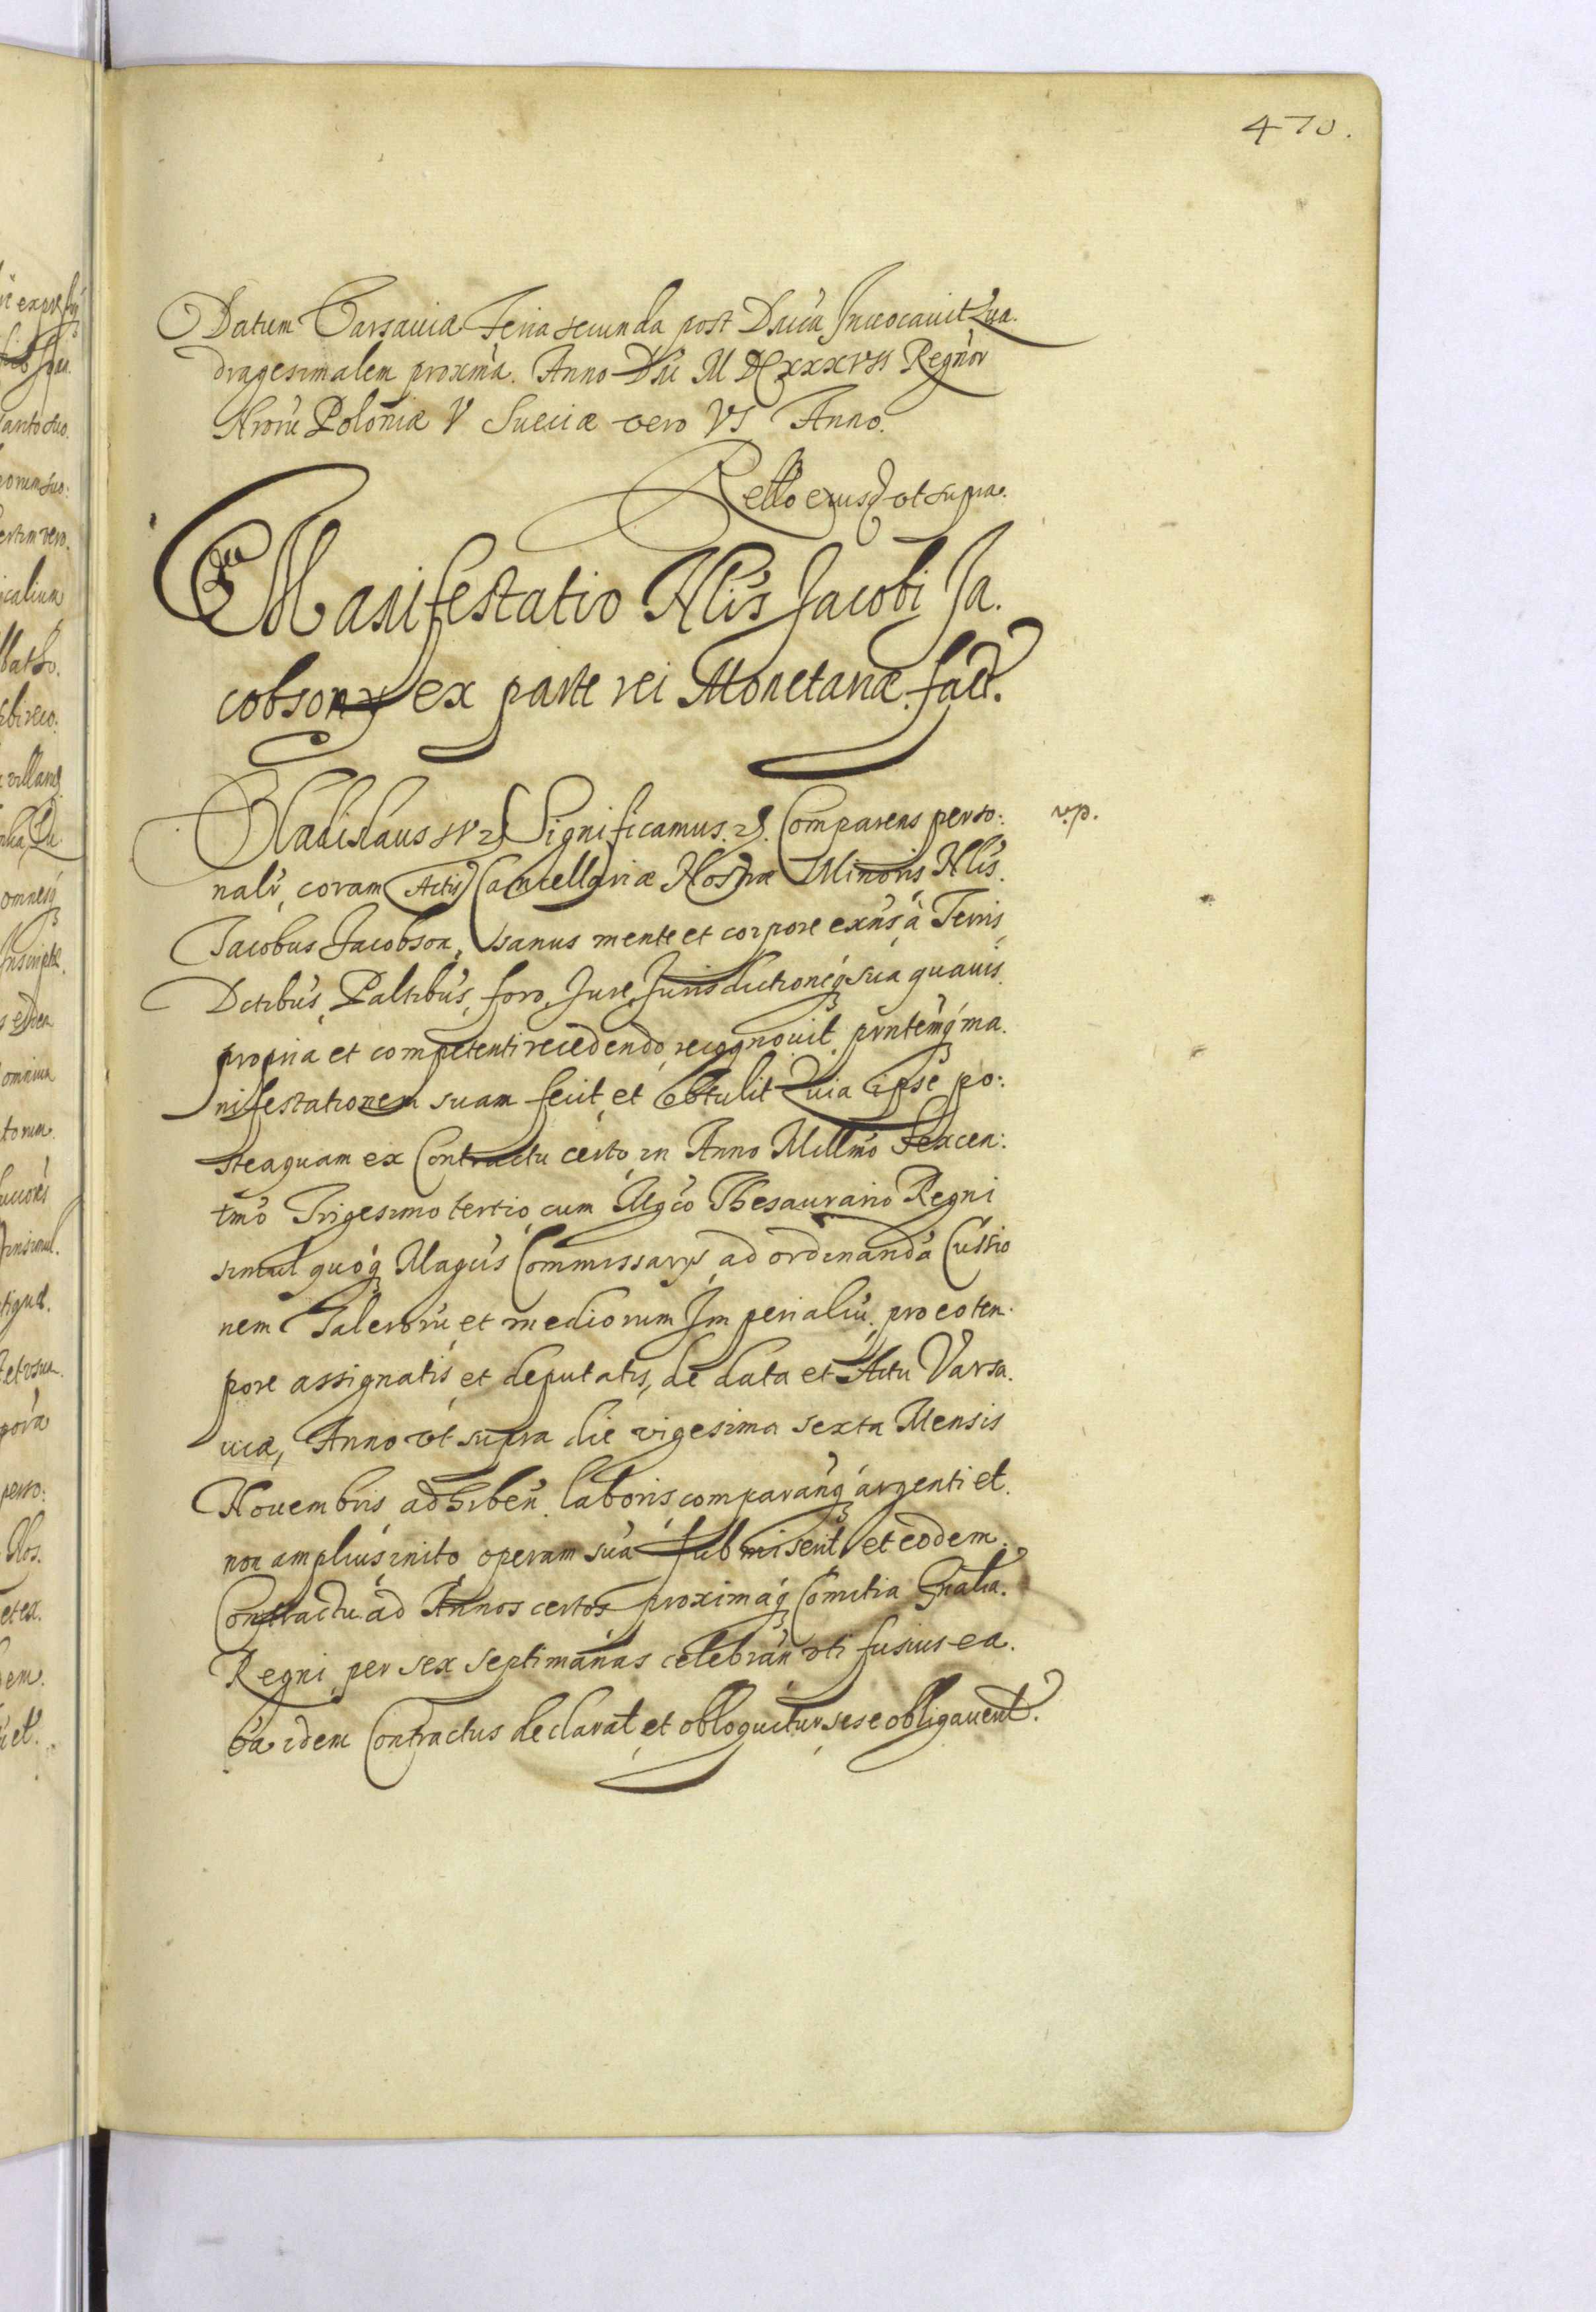 470.
Datum Varsaviæ Feria secunda post Dnicā Invocavit Qua.
dragesimalem proximā. Anno Dni M DCxxxvii Regnōr
Nrorū Poloniæ V Sueciæ vero VI Anno.
Rello eiusd ut supra.
Manifestatio Nlis Jacobi Ja.
cobson ex parte rei Monetariæ fact.
Vladislaus IV Significamus. Comparens perso:
v.p.
nalr, coram Actis Cancellariæ Nostræ Minoris Nlis.
Jacobus Jacobson, sanus mente et corpore exn̄s à Terris
Dctibus, Paltibus, foro, Jure, Jurisdictioneq sua quavis
propria et competenti recedendo, recognovit, pnntemq ma.
nifestationem suam fecit, et obtulit Quia ipse po:
steaquam ex Contractu certo in Anno Millmo Sexcen:
tmo Trigesimo tertio cum Mgco Thesaurario Regni
simul quoq Magcis Commissarys ad ordinandā Cussio
nem Talerorū et mediorum Imperialiū, pro eo tem.
pore assignatis et deputatis, de data et Actu Varsa.
viæ, Anno ut supra die vigesima sexta Mensis
Novembris adhiben. laboris, comparanq argenti et
non amplius, inito, operam suā submiserit, et eodem
Contractu ad Annos certos proximaq Comitia Gnalia.
Regni, per sex septimanas celebran uti fusius ea.
oīa idem Contractus declarat, et obloquitur, sese obligaverit.